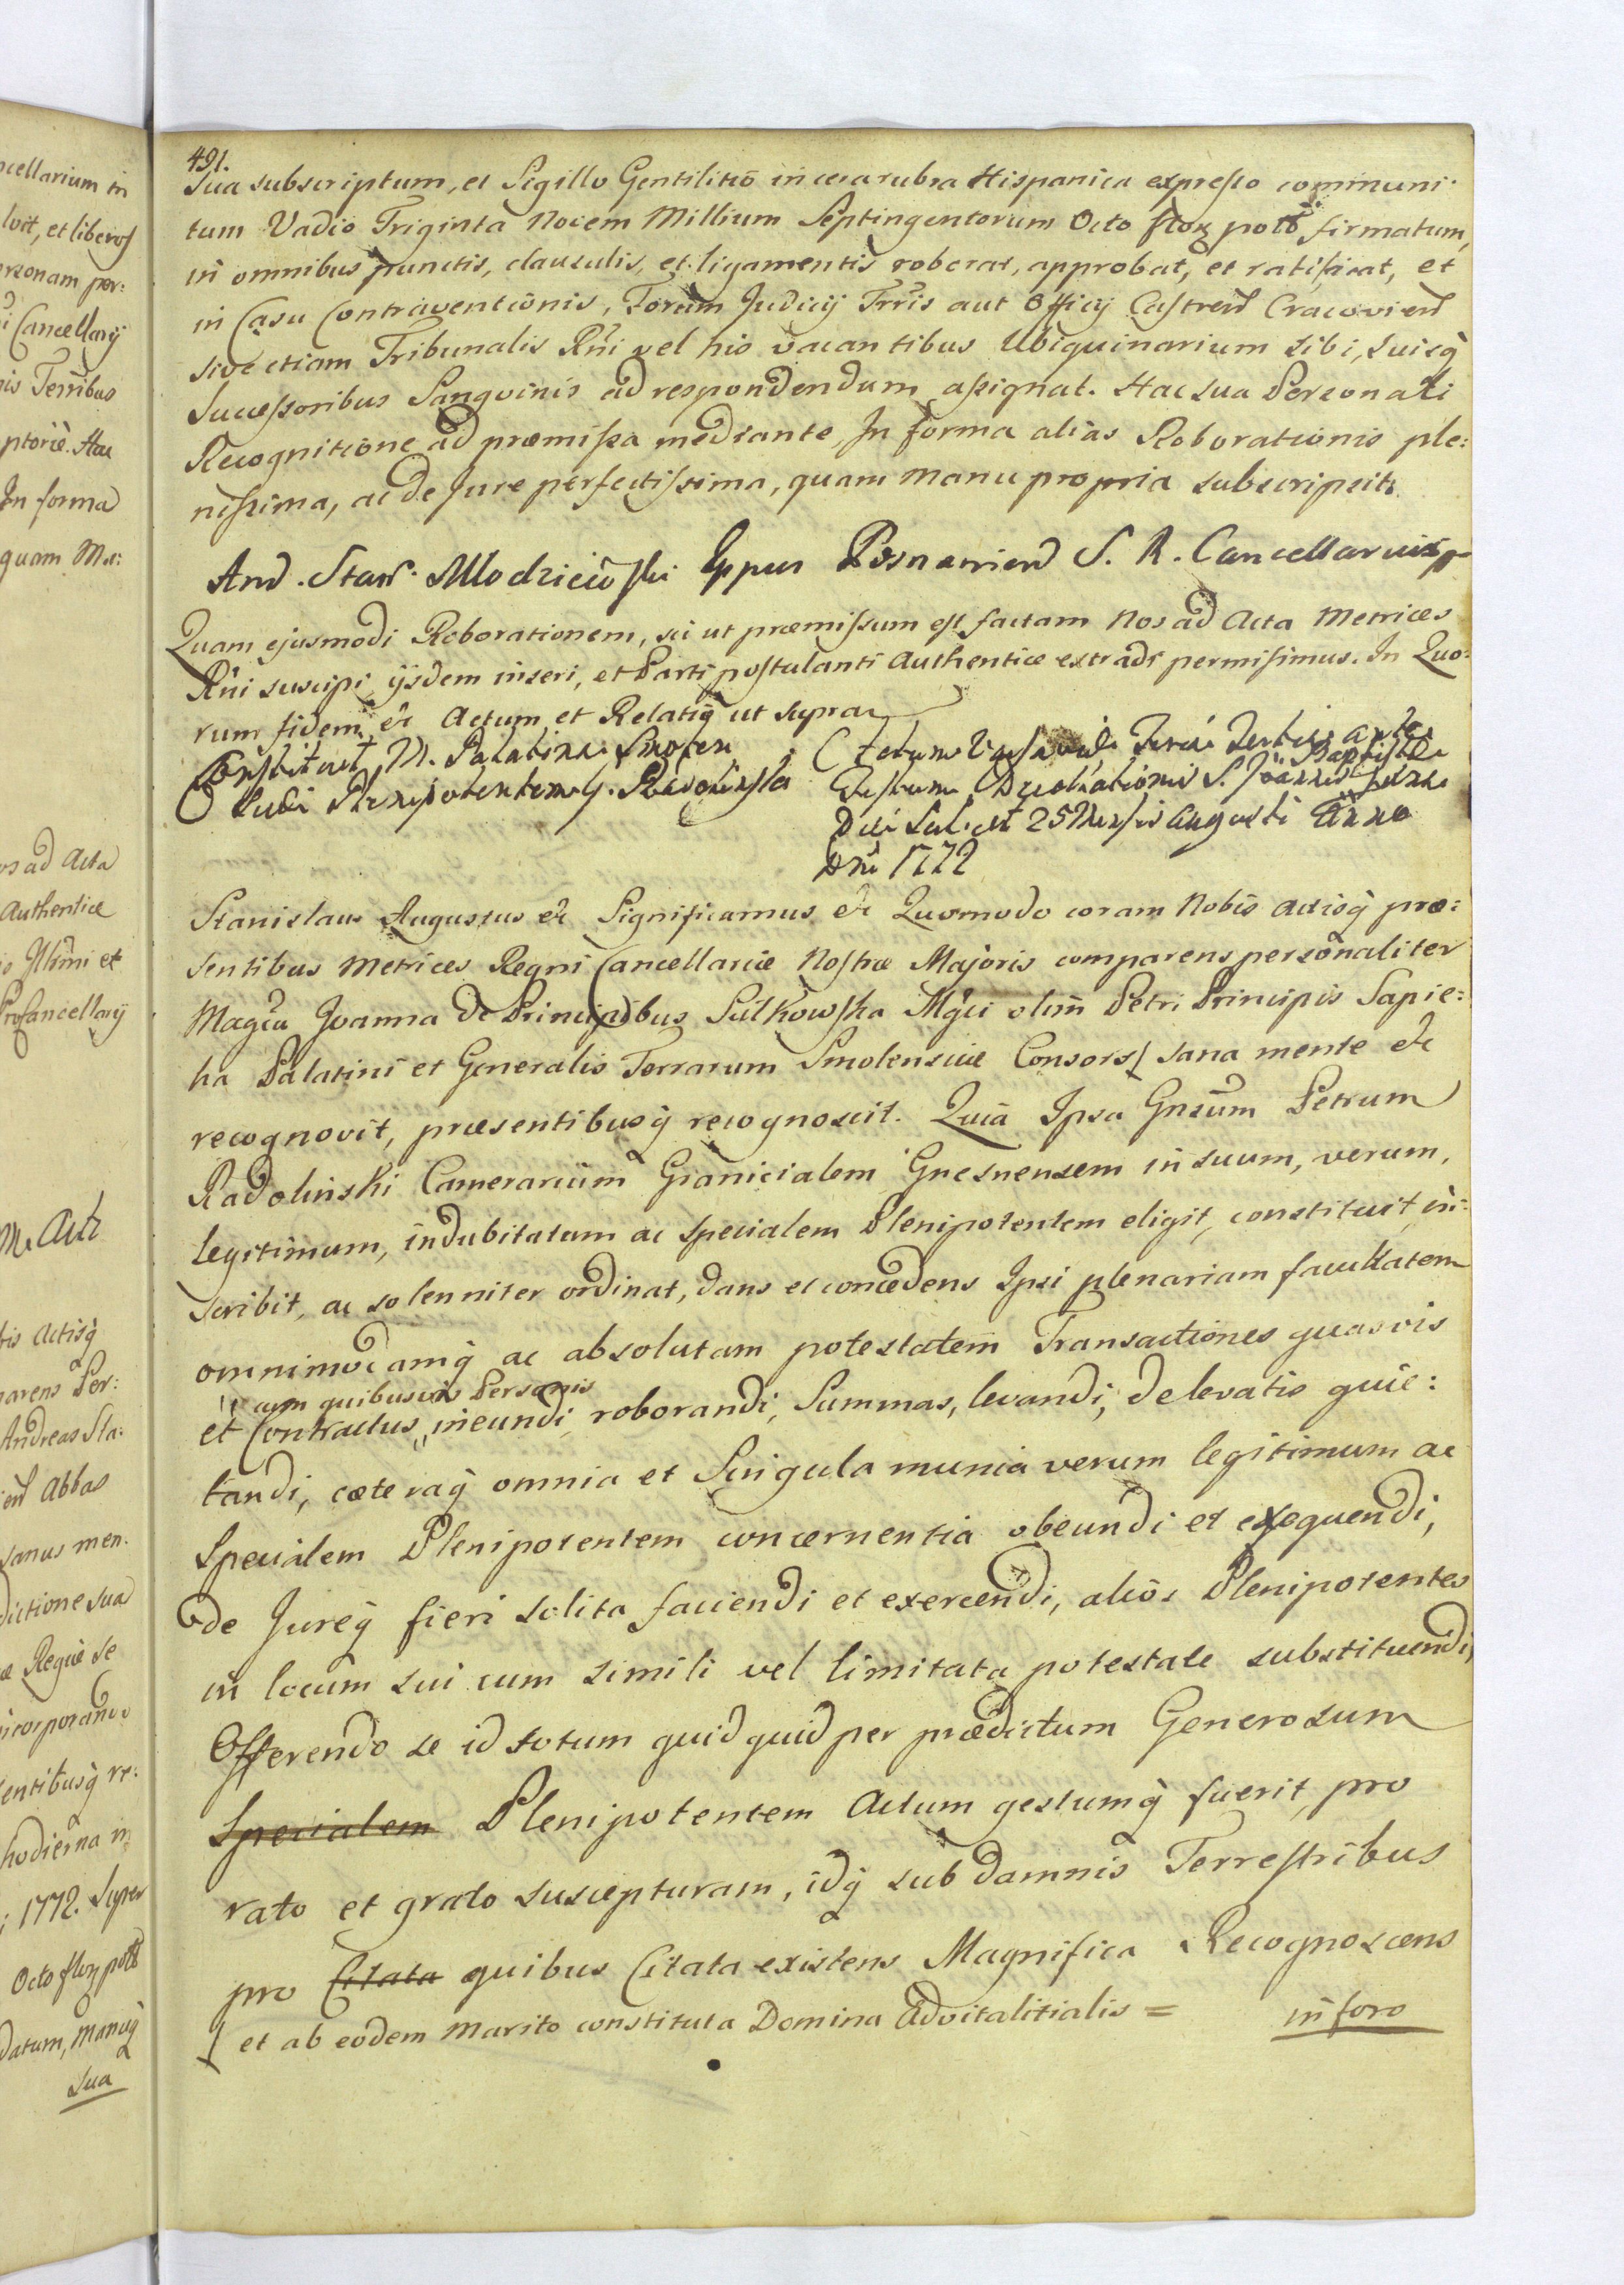 cellarium in
luit, et liberos
ersonam per:
Cancellarij
is Terribus
ptorie. Hac
In forma
quam Ma:
os ad Acta
Authentice
Illmi et
Procancellarij
M. Acti
bis Actisq̃
parens Per:
Andreas Sta:
Abbas
sanus men.
dictione sua
æ Regiæ se
icorporando
entibusq̃ re:
hodierna in
1772. Super
Octo floꝝ poło
datum, Manuq̃
sua
491.
Sua subscriptum, et Sigillo Gentilitio in cera rubra Hispanica expresso communi:
tum Vadio Triginta Novem Millium Septingentorum Octo floꝝ poło firmatum,
in omnibus punctis, clausulis, et ligamentis roborat, approbat, et ratificat, et
in Casu Contraventionis, Forum Judicij Trrīs aut Officij Castren̄ Cracovien̄
sive etiam Tribunalis Rñi vel his vacantibus Ubiquinarium sibi, suisq̃
Successoribus Sangvinis ad respondendum assignat. Hac sua Personali
Recognitione ad præmissa mediante, In forma alias Roborationis ple:
nissima, ac de Jure perfectissima, quam manu propria subscripsit.
And. Stan. Młodzieiowski Eppus Posnanien̄ S. R. Cancellarius
Quam ejusmodi Roborationem, sic ut præmissum est factam Nos ad Acta Metrices
Rñi suscipi ijsdem inseri, et Parti postulanti Authentice extradi permisimus. In Quo:
rum fidem &c Actum et Relatiq̃ ut supra
Constituit M. Palatina Smolen
Sibi Plenipotentem G. Radolinski
Actum Varsaviæ Feria Tertia ante
Festum Decollationis S. Joannis Baptistæ
Die Salicet 25 Mensis Augusti Anno
Dñi 1772
Stanislaus Augustus &c Significamus &c Quomodo coram Nobis Actisq̃ præ:
sentibus Metrices Regni Cancellariæ Nostræ Majoris comparens personaliter
Magca Joanna De Principibus Sułkowska Mgci olim Petri Principis Sapie:
ha Palatini et Generalis Terrarum Smolensciæ Consors/ sana mente &c
recognovit, præsentibusq̃ recognoscit. Quia Ipsa Gnsum Petrum
Radolinski Camerarium Granicialem Gnesnensem in suum, verum,
legitimum, indubitatum ac specialem Plenipotentem eligit, constituit in:
scribit, ac solenniter ordinat, dans et concedens Ipsi plenariam facultatem
omnimodamq̃ ac absolutam potestatem Transactiones quasvis
cum quibusvis Personis
et Contractus ineundi roborandi, Summas, levandi, de levatis quie:
tandi, cæteraq̃ omnia et Singula munia verum legitimum ac
Specialem Plenipotentem concernentia obeundi et exequendi,
de Jureq̃ fieri solita faciendi et exercendi, alios Plenipotentes
in locum sui cum simili vel limitata potestate substituendi,
Offerendo se id totum quidquid per prædictum Generosum
Specialem Plenipotentem Actum gestumq̃ fuerit, pro
rato et grato suscepturam, idq̃ sub damnis Terrestribus
pro Citata quibus Citata existens Magnifica Recognoscens
/ et ab eodem Marito constituta Domina Advitalitialis =
in foro